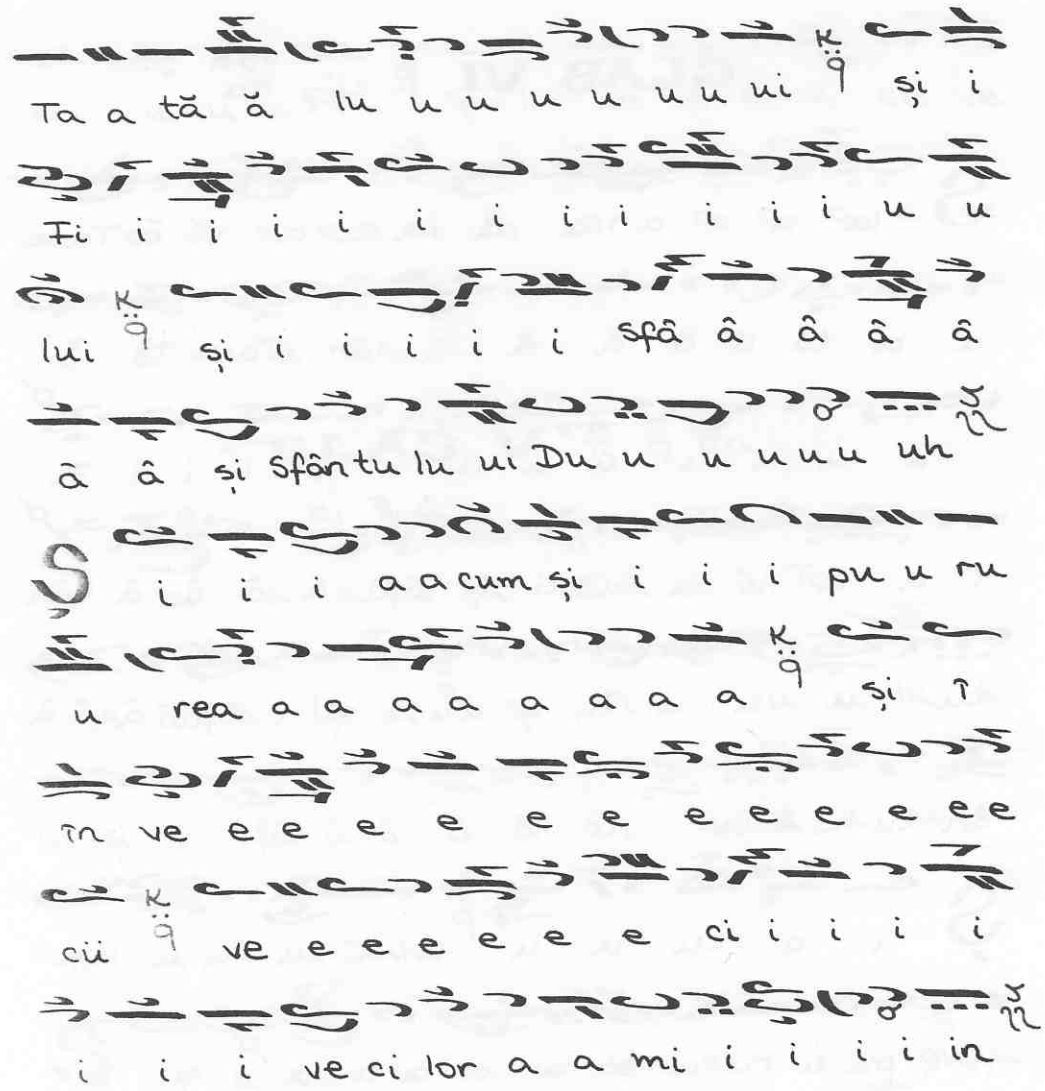 Ta a tă ă lu u u u u u u ui și i
Fi i i i i i i i i i i u u
lui și i i i i i Sfâ â â â â
â â și Sfân tu lu ui Du u u u u u uh
Ș i i i a a cum și i i i pu u ru
u rea a a a a a a a și î
în ve e e e e e e e e e e e
cii ve e e e e e e ci i i i i
i i i ve ci lor a a mi i i i i in